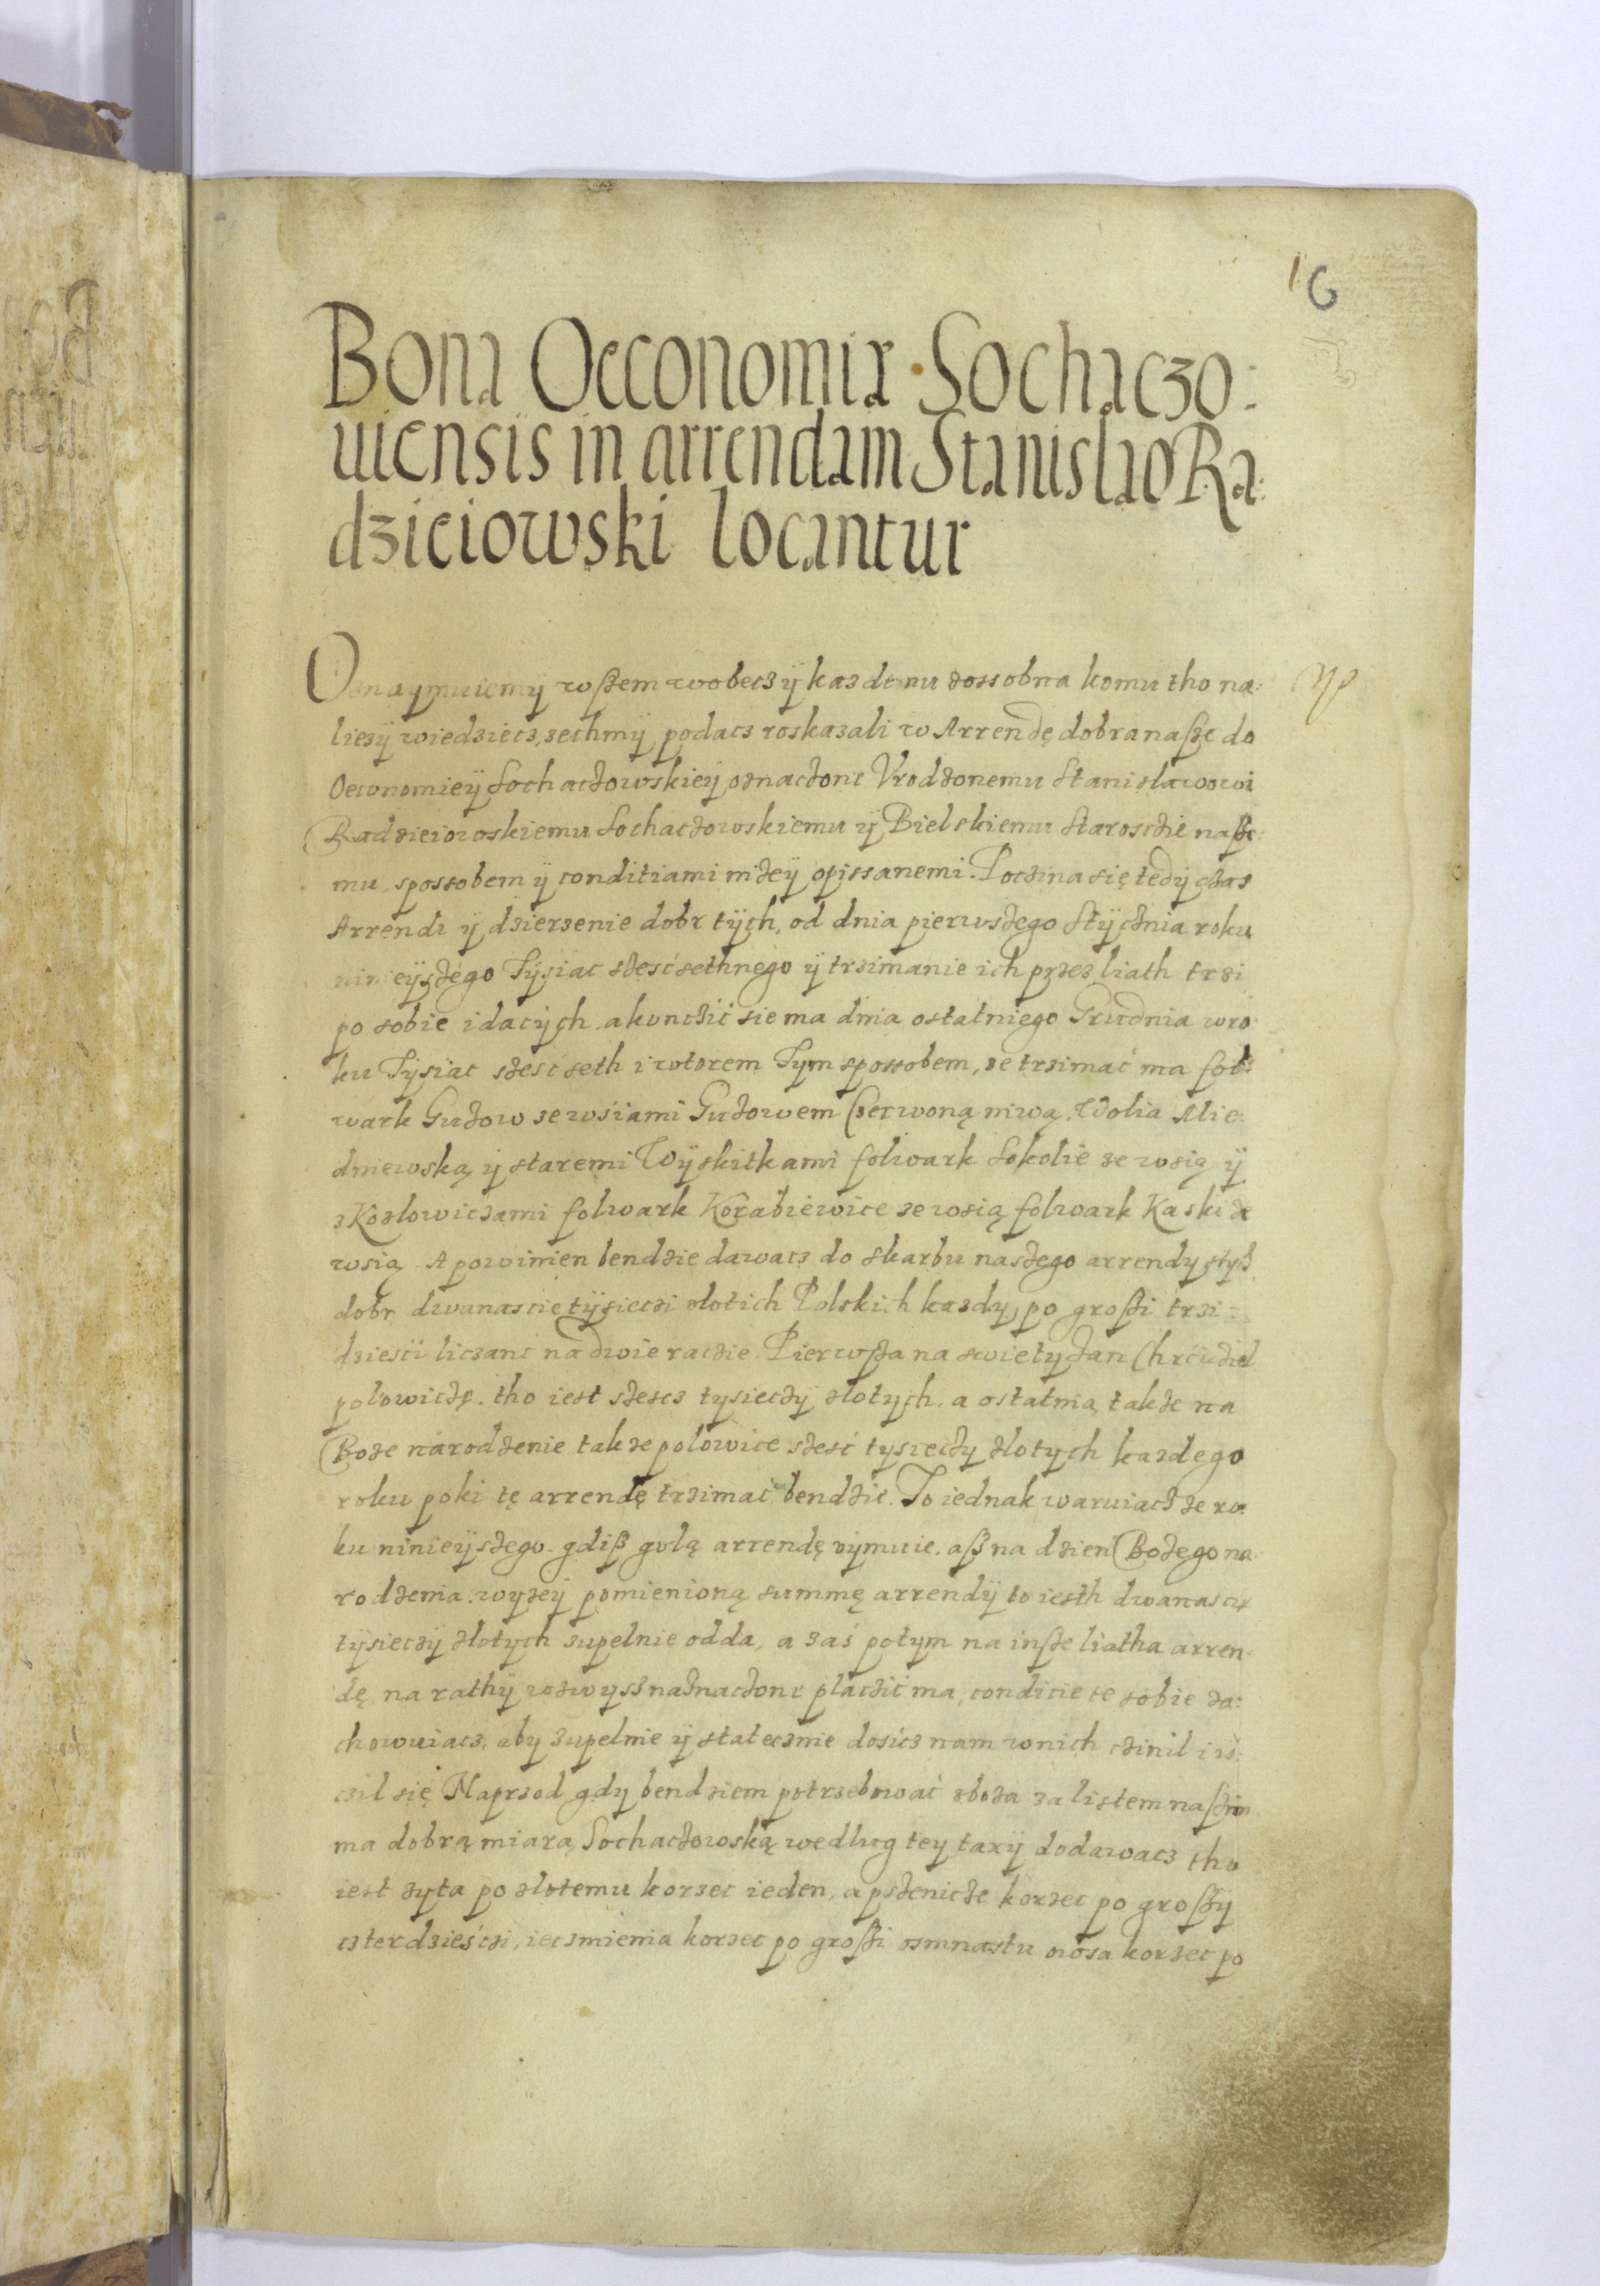 16
Bona Oeconomiæ Sochaczo:
uiensis in arrendam Stanislao Ra:
dzieiowski locantur
Oznaymuiemÿ wszem wobecz ÿ kazdemu zossobna komu tho na:
liezÿ wiedziecz, zechmÿ podacz roskazali w Arrendę dobra nasze do
Oeconomieÿ Sochaczowskieÿ oznaczone Vrodzonemu Stanisławowi
Radzieiowskiemu Sochaczowskiemu ÿ Bielskiemu Starosczie nasze:
mu, spossobem ÿ conditiami nizeÿ opissanemi. Poczina się tedÿ czas
Arrendi ÿ dzierzenie dobr tÿch, od dnia pierwszego Stÿcznia roku
ninieÿszego Tÿsiac szesćsethnego ÿ trzimanie ich przez liath trzi
po sobie idacÿch, akonczić sie ma dnia ostatniego Grudnia wro
ku Tysiac szesć seth i wtorem Tym spossobem, ze trzimać ma fol:
wark Guzow ze wsiami Guzowem Czerwoną niwą, Wolia Mie:
dniewską ÿ staremi Wÿskitkami folwark Sokolie ze wsią ÿ
z Kozlowiczami folwark Korabiewice ze wsią folwark Kaski ze
wsią. A powinien bendzie dawacz do skarbu naszego arrendy stych
dobr dwanascie tÿsieczi zlotich Polskich kazdy po groszi trzi:
dziesci liczanc na dwie raczie. Pierwsza na swiety Jan Chrcziciel
polowiczę. tho iest szescz tysieczÿ zlotych. a ostatnią takze na
Boze narodzenie takze polowice szesć tysieczy zlotych kazdego
roku poki tę arrendę trzimać bendzie. To iednak waruiacz ze ro
ku ninieÿszego. gdisz golą arrendę ÿmuie. asz na dzien Bozego na:
rodzenia. wyzeÿ pomienioną summę arrendÿ to iesth dwanascie
tÿsieczÿ zlotych zupelnie odda, a zaś potym na insze liatha arren:
dę na rathÿ wzwysz naznaczone placzić ma, condicie te sobie za:
chowuiacz, aby zupelnie ÿ statecznie dosicz nam wnich czinil i is:
czil się Naprzod gdy bendziem potrzebować zboza za listem naszim
ma dobrą miarą Sochaczowską wedlug teÿ taxÿ dodawacz tho
iest zyta po zlotemu korzec ieden, a pszenicze korzec po groszÿ
czterdziesci, ieczmienia korzec po groszi osmnastu owsa korzec po